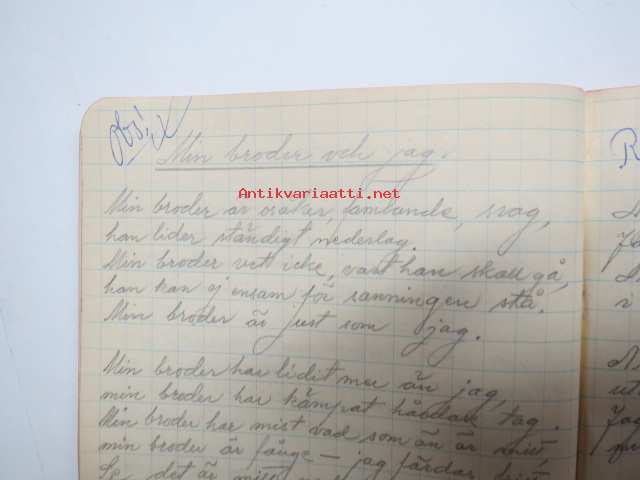 Obs!
Min broder och jag.
Antikvariaatti.net
Min broder är osäker, famlande, svag,
han lider ständigt nederlag.
Min broder vet icke, vart han skall gå,
han kan ej ensam för sanningen stå.
Min broder är just som jag.
Min broder har lidit mer än jag,
min broder har kämpat hårdare tag.
Min broder har mist vad som än är mitt,
min broder är fånge – jag färdas fritt
Se, det är
R